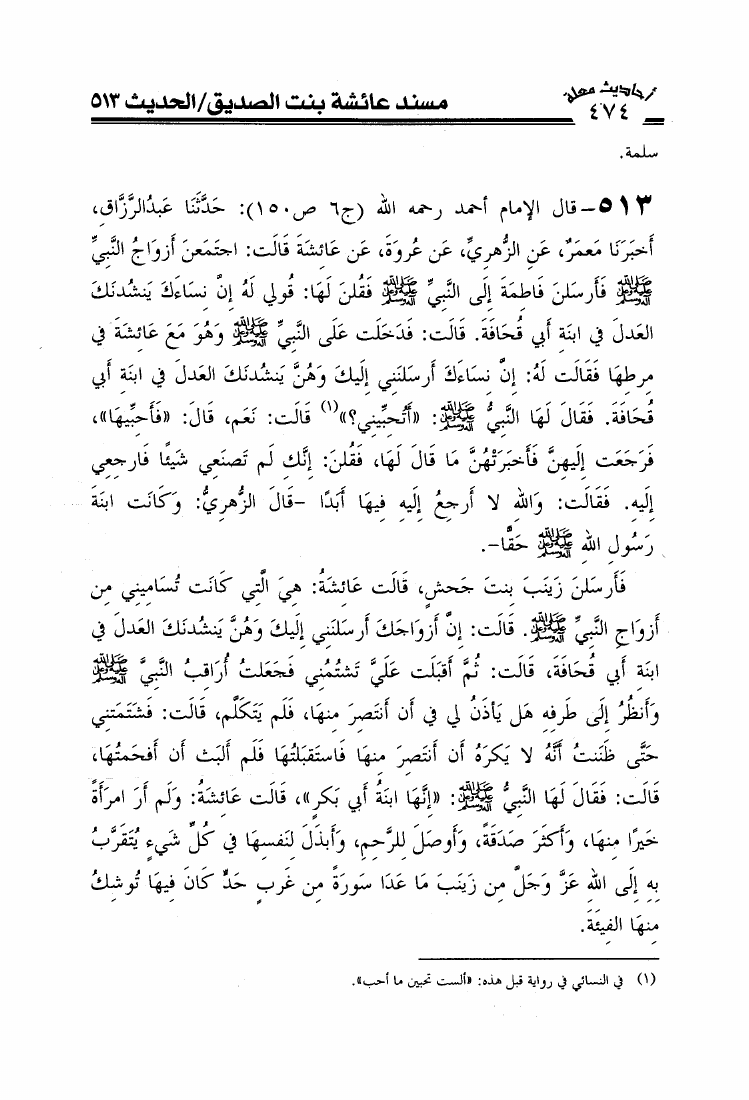 أحاديث معلة
٤٧٤
مسند عائشة بنت الصديق/الحديث ٥١٣
سلمة.
٥١٣- قال الإمام أحمد رحمه الله (ج٦ ص١٥٠): حَدَّثَنَا عَبدُالرَّزَّاقِ،
أَخبَرَنَا مَعمَرٌ، عَنِ الزُّهرِيِّ، عَن عُروَةَ، عَن عَائشَةَ قَالَت: اجتَمَعنَ أَزوَاجُ النَّبِيِّ
ﷺ فَأَرسَلنَ فَاطِمَةَ إِلَى النَّبِيِّ ﷺ فَقُلنَ لَهَا: قُولِي لَهُ إِنَّ نِسَاءَكَ يَنشُدنَكَ
العَدلَ فِي ابنَةِ أَبِي قُحَافَةَ. قَالَت: فَدَخَلَت عَلَى النَّبِيِّ ﷺ وَهُوَ مَعَ عَائِشَةَ فِي
مِرطِهَا فَقَالَت لَهُ: إِنَّ نِسَاءَكَ أَرسَلنَنِي إِلَيكَ وَهُنَّ يَنشُدنَكَ العَدلَ فِي ابنَةِ أَبِي
قُحَافَةَ. فَقَالَ لَهَا النَّبِيُّ ﷺ: «أَتُحِبِّينِي؟»(١) قَالَت: نَعَم، قَالَ: «فَأَحِبِّيهَا»،
فَرَجَعَت إِلَيهِنَّ فَأَخبَرَتْهُنَّ مَا قَالَ لَهَا، فَقُلنَ: إِنَّكِ لَم تَصنَعِي شَيئًا فَارجِعِي
إِلَيهِ. فَقَالَت: وَاللهِ لَا أَرجِعُ إِلَيهِ فِيهَا أَبَدًا -قَالَ الزُّهرِيُّ: وَكَانَت ابنَةَ
رَسُولِ اللهِ ﷺ حَقًّا-.
فَأَرسَلنَ زَينَبَ بِنتَ جَحشٍ، قَالَت عَائِشَةُ: هِيَ الَّتِي كَانَت تُسَامِينِي مِن
أَزوَاجِ النَّبِيِّ ﷺ. قَالَت: إِنَّ أَزوَاجَكَ أَرسَلنَنِي إِلَيكَ وَهُنَّ يَنشُدنَكَ العَدلَ فِي
ابنَةِ أَبِي قُحَافَةَ، قَالَت: ثُمَّ أَقبَلَت عَلَيَّ تَشتُمُنِي فَجَعَلتُ أُرَاقِبُ النَّبِيَّ ﷺ
وَأَنظُرُ إِلَى طَرفِهِ هَل يَأذَنُ لِي فِي أَن أَنتَصِرَ مِنهَا، فَلَم يَتَكَلَّم، قَالَت: فَشَتَمَتنِي
حَتَّى ظَنَنتُ أَنَّهُ لَا يَكرَهُ أَن أَنتَصِرَ مِنهَا فَاستَقبَلتُهَا فَلَم أَلبَث أَن أَفحَمتُهَا،
قَالَت: فَقَالَ لَهَا النَّبِيُّ ﷺ: «إِنَّهَا ابنَةُ أَبِي بَكرٍ»، قَالَت عَائِشَةُ: وَلَم أَرَ امرَأَةً
خَيرًا مِنهَا، وَأَكثَرَ صَدَقَةً، وَأَوصَلَ لِلرَّحِمِ، وَأَبذَلَ لِنَفسِهَا فِي كُلِّ شَيءٍ يُتَقَرَّبُ
بِهِ إِلَى اللهِ عَزَّ وَجَلَّ مِن زَينَبَ مَا عَدَا سَورَةً مِن غَربِ حَدٍّ كَانَ فِيهَا تُوشِكُ
مِنهَا الفِيئَةَ.
(١) في النسائي في رواية قبل هذه: «ألست تحبين ما أحب».